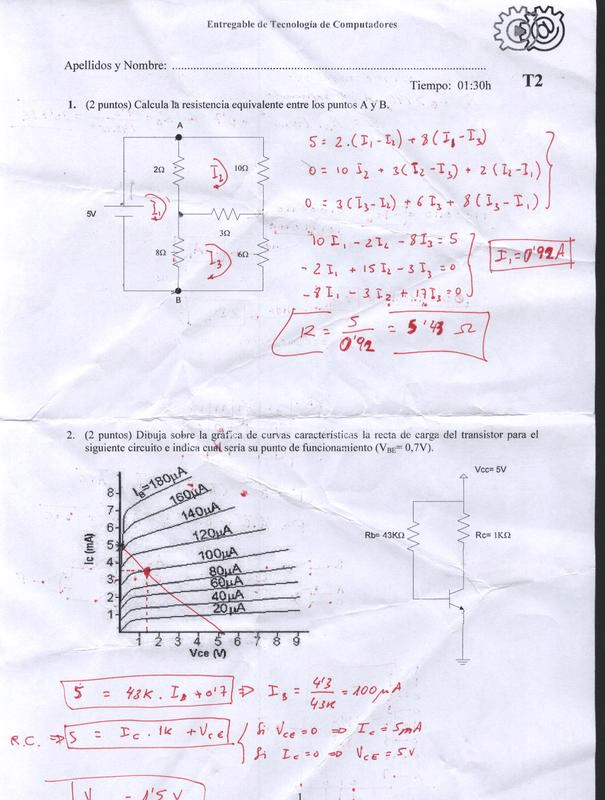 Entregable de Tecnología de Computadores
Apellidos y Nombre: ......................................................................................
Tiempo: 01:30h T2
1. (2 puntos) Calcula la resistencia equivalente entre los puntos A y B.
A
2Ω
I2
10Ω
5V
I1
3Ω
8Ω
I3
6Ω
B
5 = 2.(I1-I2) + 8(I1-I3)
0 = 10 I2 + 3(I2-I3) + 2(I2-I1)
0 = 3(I3-I2) + 6I3 + 8(I3-I1)
10 I1 - 2I2 - 8I3 = 5
-2I1 + 15I2 - 3I3 = 0
-8I1 - 3I2 + 17I3 = 0
I1 = 0'92A
R = 5/0'92 = 5'43 Ω
2. (2 puntos) Dibuja sobre la gráfica de curvas características la recta de carga del transistor para el
siguiente circuito e indica cual sería su punto de funcionamiento (VBE= 0,7V).
IB=180µA
160µA
140µA
120µA
100µA
80µA
60µA
40µA
20µA
Ic (mA)
8
7
6
5
4
3
2
1
1 2 3 4 5 6 7 8 9
Vce (V)
Vcc= 5V
Rb= 43KΩ
Rc= 1KΩ
5 = 43K . IB + 0'7 ⇒ IB = 4'3/43K = 100 µA
R.C. ⇒ 5 = IC . 1K + VCE
Si VCE = 0 ⇒ IC = 5mA
Si IC = 0 ⇒ VCE = 5V
= 1'5 V